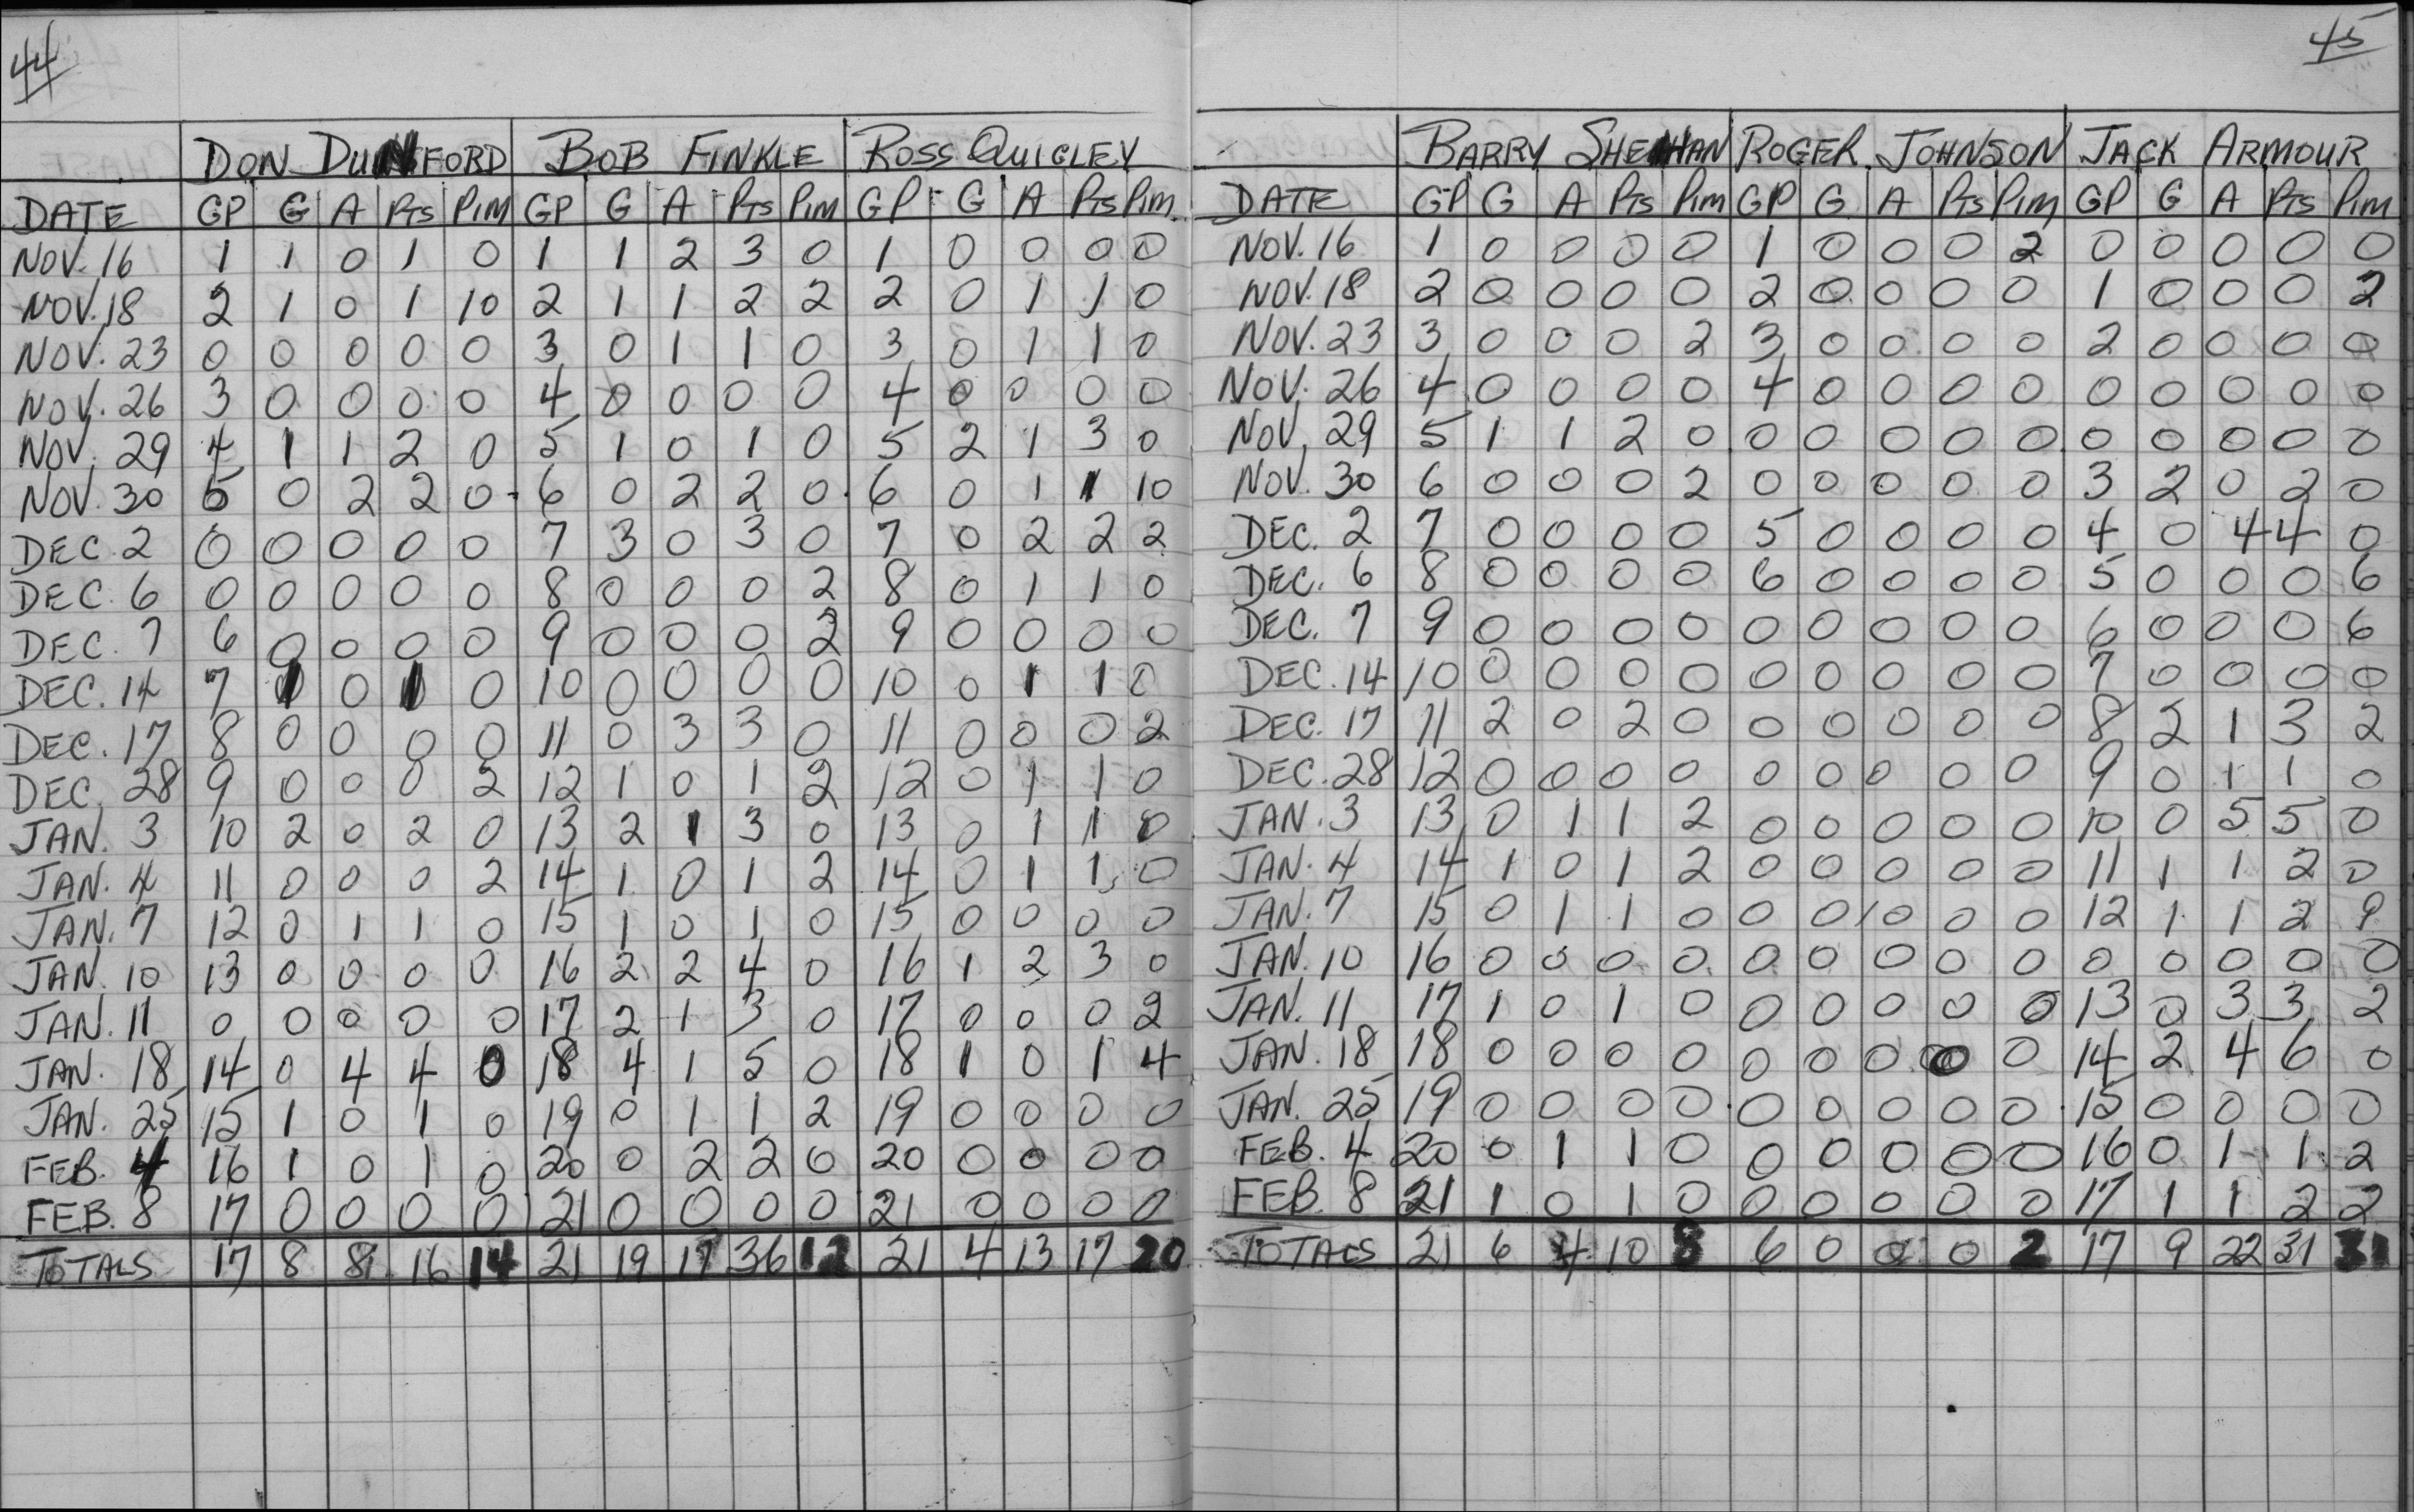 44
DON DUNSFORD BOB FINKLE ROSS QUIGLEY
DATE GP G A PTS PIM GP G A PTS PIM GP G A PTS PIM
NOV. 16 1 1 0 1 0 1 1 2 3 0 1 0 0 0 0
NOV. 18 2 1 0 1 10 2 1 1 2 2 2 0 1 1 0
NOV. 23 0 0 0 0 0 3 0 1 1 0 3 0 1 1 0
NOV. 26 3 0 0 0 0 4 0 0 0 0 4 0 0 0 0
NOV. 29 4 1 1 2 0 5 1 0 1 0 5 2 1 3 0
NOV. 30 5 0 2 2 0 6 0 2 2 0 6 0 1 1 10
DEC. 2 0 0 0 0 0 7 3 0 3 0 7 0 2 2 2
DEC. 6 0 0 0 0 0 8 0 0 0 2 8 0 1 1 0
DEC. 7 6 0 0 0 0 9 0 0 0 2 9 0 0 0 0
DEC. 14 7 1 0 1 0 10 0 0 0 0 10 0 1 1 0
DEC. 17 8 0 0 0 0 11 0 3 3 0 11 0 0 0 2
DEC. 28 9 0 0 0 2 12 1 0 1 2 12 0 1 1 0
JAN. 3 10 2 0 2 0 13 2 1 3 0 13 0 1 1 0
JAN. 4 11 0 0 0 2 14 1 0 1 2 14 0 1 1 0
JAN. 7 12 0 1 1 0 15 1 0 1 0 15 0 0 0 0
JAN. 10 13 0 0 0 0 16 2 2 4 0 16 1 2 3 0
JAN. 11 0 0 0 0 0 17 2 1 3 0 17 0 0 0 2
JAN. 18 14 0 4 4 0 18 4 1 5 0 18 1 0 1 4
JAN. 25 15 1 0 1 0 19 0 1 1 2 19 0 0 0 0
FEB. 4 16 1 0 1 0 20 0 2 2 0 20 0 0 0 0
FEB. 8 17 0 0 0 0 21 0 0 0 0 21 0 0 0 0
TOTALS 17 8 8 16 14 21 19 17 36 12 21 4 13 17 20
45
BARRY SHEEHAN ROGER JOHNSON JACK ARMOUR
DATE GP G A PTS PIM GP G A PTS PIM GP G A PTS PIM
NOV. 16 1 0 0 0 0 1 0 0 0 2 0 0 0 0 0
NOV. 18 2 0 0 0 0 2 0 0 0 0 1 0 0 0 2
NOV. 23 3 0 0 0 2 3 0 0 0 0 2 0 0 0 0
NOV. 26 4 0 0 0 0 4 0 0 0 0 0 0 0 0 0
NOV. 29 5 1 1 2 0 0 0 0 0 0 0 0 0 0 0
NOV. 30 6 0 0 0 2 0 0 0 0 0 3 2 0 2 0
DEC. 2 7 0 0 0 0 5 0 0 0 0 4 0 4 4 0
DEC. 6 8 0 0 0 0 6 0 0 0 0 5 0 0 0 6
DEC. 7 9 0 0 0 0 0 0 0 0 0 6 0 0 0 6
DEC. 14 10 0 0 0 0 0 0 0 0 0 7 0 0 0 0
DEC. 17 11 2 0 2 0 0 0 0 0 0 8 2 1 3 2
DEC. 28 12 0 0 0 0 0 0 0 0 0 9 0 1 1 0
JAN. 3 13 0 1 1 2 0 0 0 0 0 10 0 5 5 0
JAN. 4 14 1 0 1 2 0 0 0 0 0 11 1 1 2 0
JAN. 7 15 0 1 1 0 0 0 0 0 0 12 1 1 2 9
JAN. 10 16 0 0 0 0 0 0 0 0 0 0 0 0 0 0
JAN. 11 17 1 0 1 0 0 0 0 0 0 13 0 3 3 2
JAN. 18 18 0 0 0 0 0 0 0 0 0 14 2 4 6 0
JAN. 25 19 0 0 0 0 0 0 0 0 0 15 0 0 0 0
FEB. 4 20 0 1 1 0 0 0 0 0 0 16 0 1 1 2
FEB. 8 21 1 0 1 0 0 0 0 0 0 17 1 1 2 2
TOTALS 21 6 4 10 8 6 0 0 0 2 17 9 22 31 31